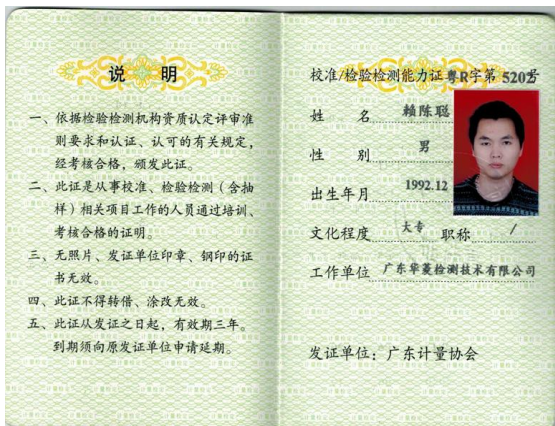 说明
一、依据检验检测机构资质认定评审准
则要求和认证、认可的有关规定,
经考核合格，颁发此证。
二、此证是从事校准、检验检测（含抽
样）相关项目工作的人员通过培训、
考核合格的证明。
三、无照片、发证单位印章、钢印的证
书无效。
四、此证不得转借、涂改无效。
五、此证从发证之日起，有效期三年。
到期须向原发证单位申请延期。
校准/检验检测能力证粤R字第 5202号
姓名 赖陈聪
性别 男
出生年月 1992.12
文化程度 大专 职称 /
工作单位 广东华菱检测技术有限公司
发证单位：广东计量协会